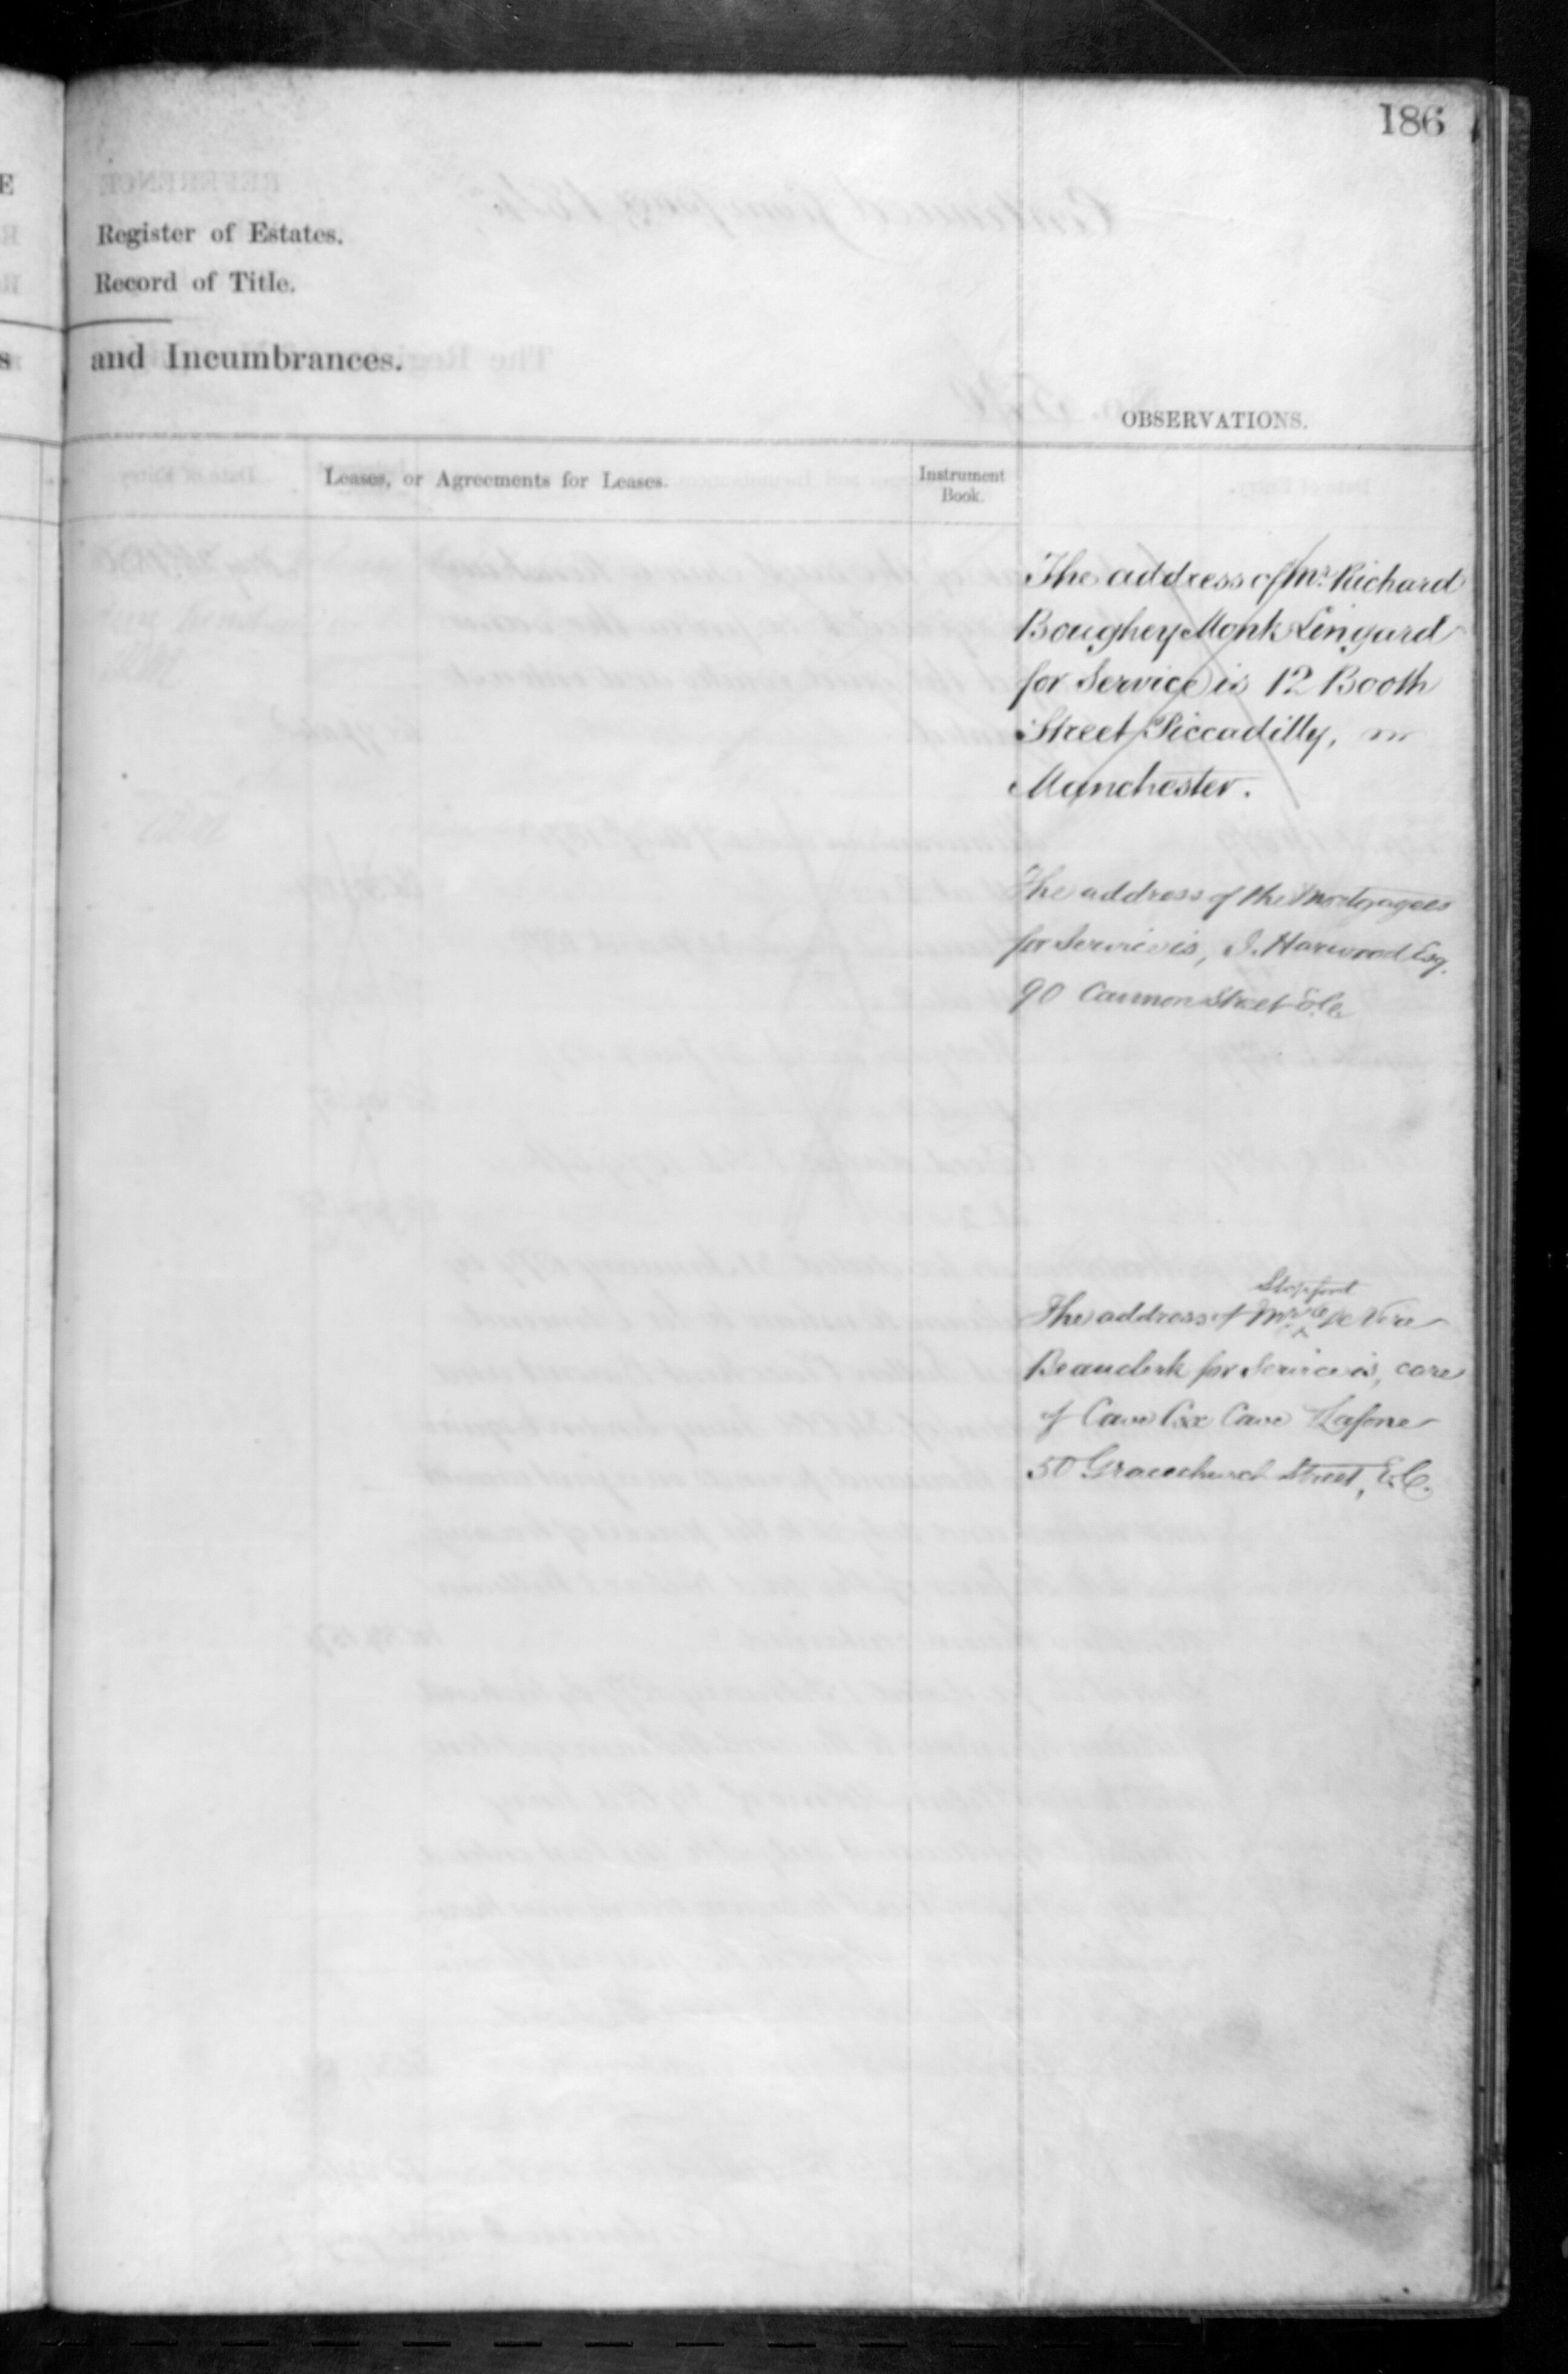 186
Register of Estates.
Record of Title.
and Incumbrances.
OBSERVATIONS.
Leases, or Agreements for Leases.
Instrument
Book.
The address of Mr. Richard
Boughey Monk Lingard
for Service is 12 Booth
Street Piccadilly, in
Manchester.
The address of the Mortgagees
for Service is, J. Harwood Esq.
90 Cannon Street E.C.
Stopford
The address of de Vere
Beauclerk for Service is, care
of Cave Cox Cave Lafone
50 Gracechurch Street, E.C.